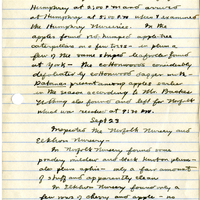 Humphrey at 2:00 P.M. and arrived
at Humphrey at 3:00 P.M. when I examined
the Humphrey Nurseries. In the
apples found red humped apple tree
caterpillars on a few trees - in plum a
few of the same shaped leafrollers found
at York - The cottonwoods considerably
defoliated by cottonwood dagger moth
Datanas present among apples earlier
in the season according to Mr. Bruckes
Yes, being also found and left for Norfolk
which was reached at 9:30 P.M.
Sept 23
Inspected the Norfolk Nursery and
Elkhorn Nursery -
In Norfolk Nursery found some
powdery mildew and black knot on plums -
also plum aphis - only a fair amount
of stuff and apparently clean
In Elkhorn Nursery found only a
few rows of cherry and apple - no